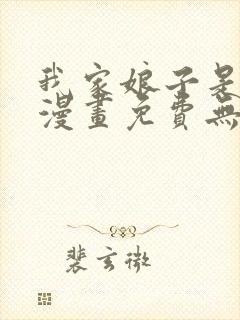 我家娘子是
漫畫免費無
裴玄微